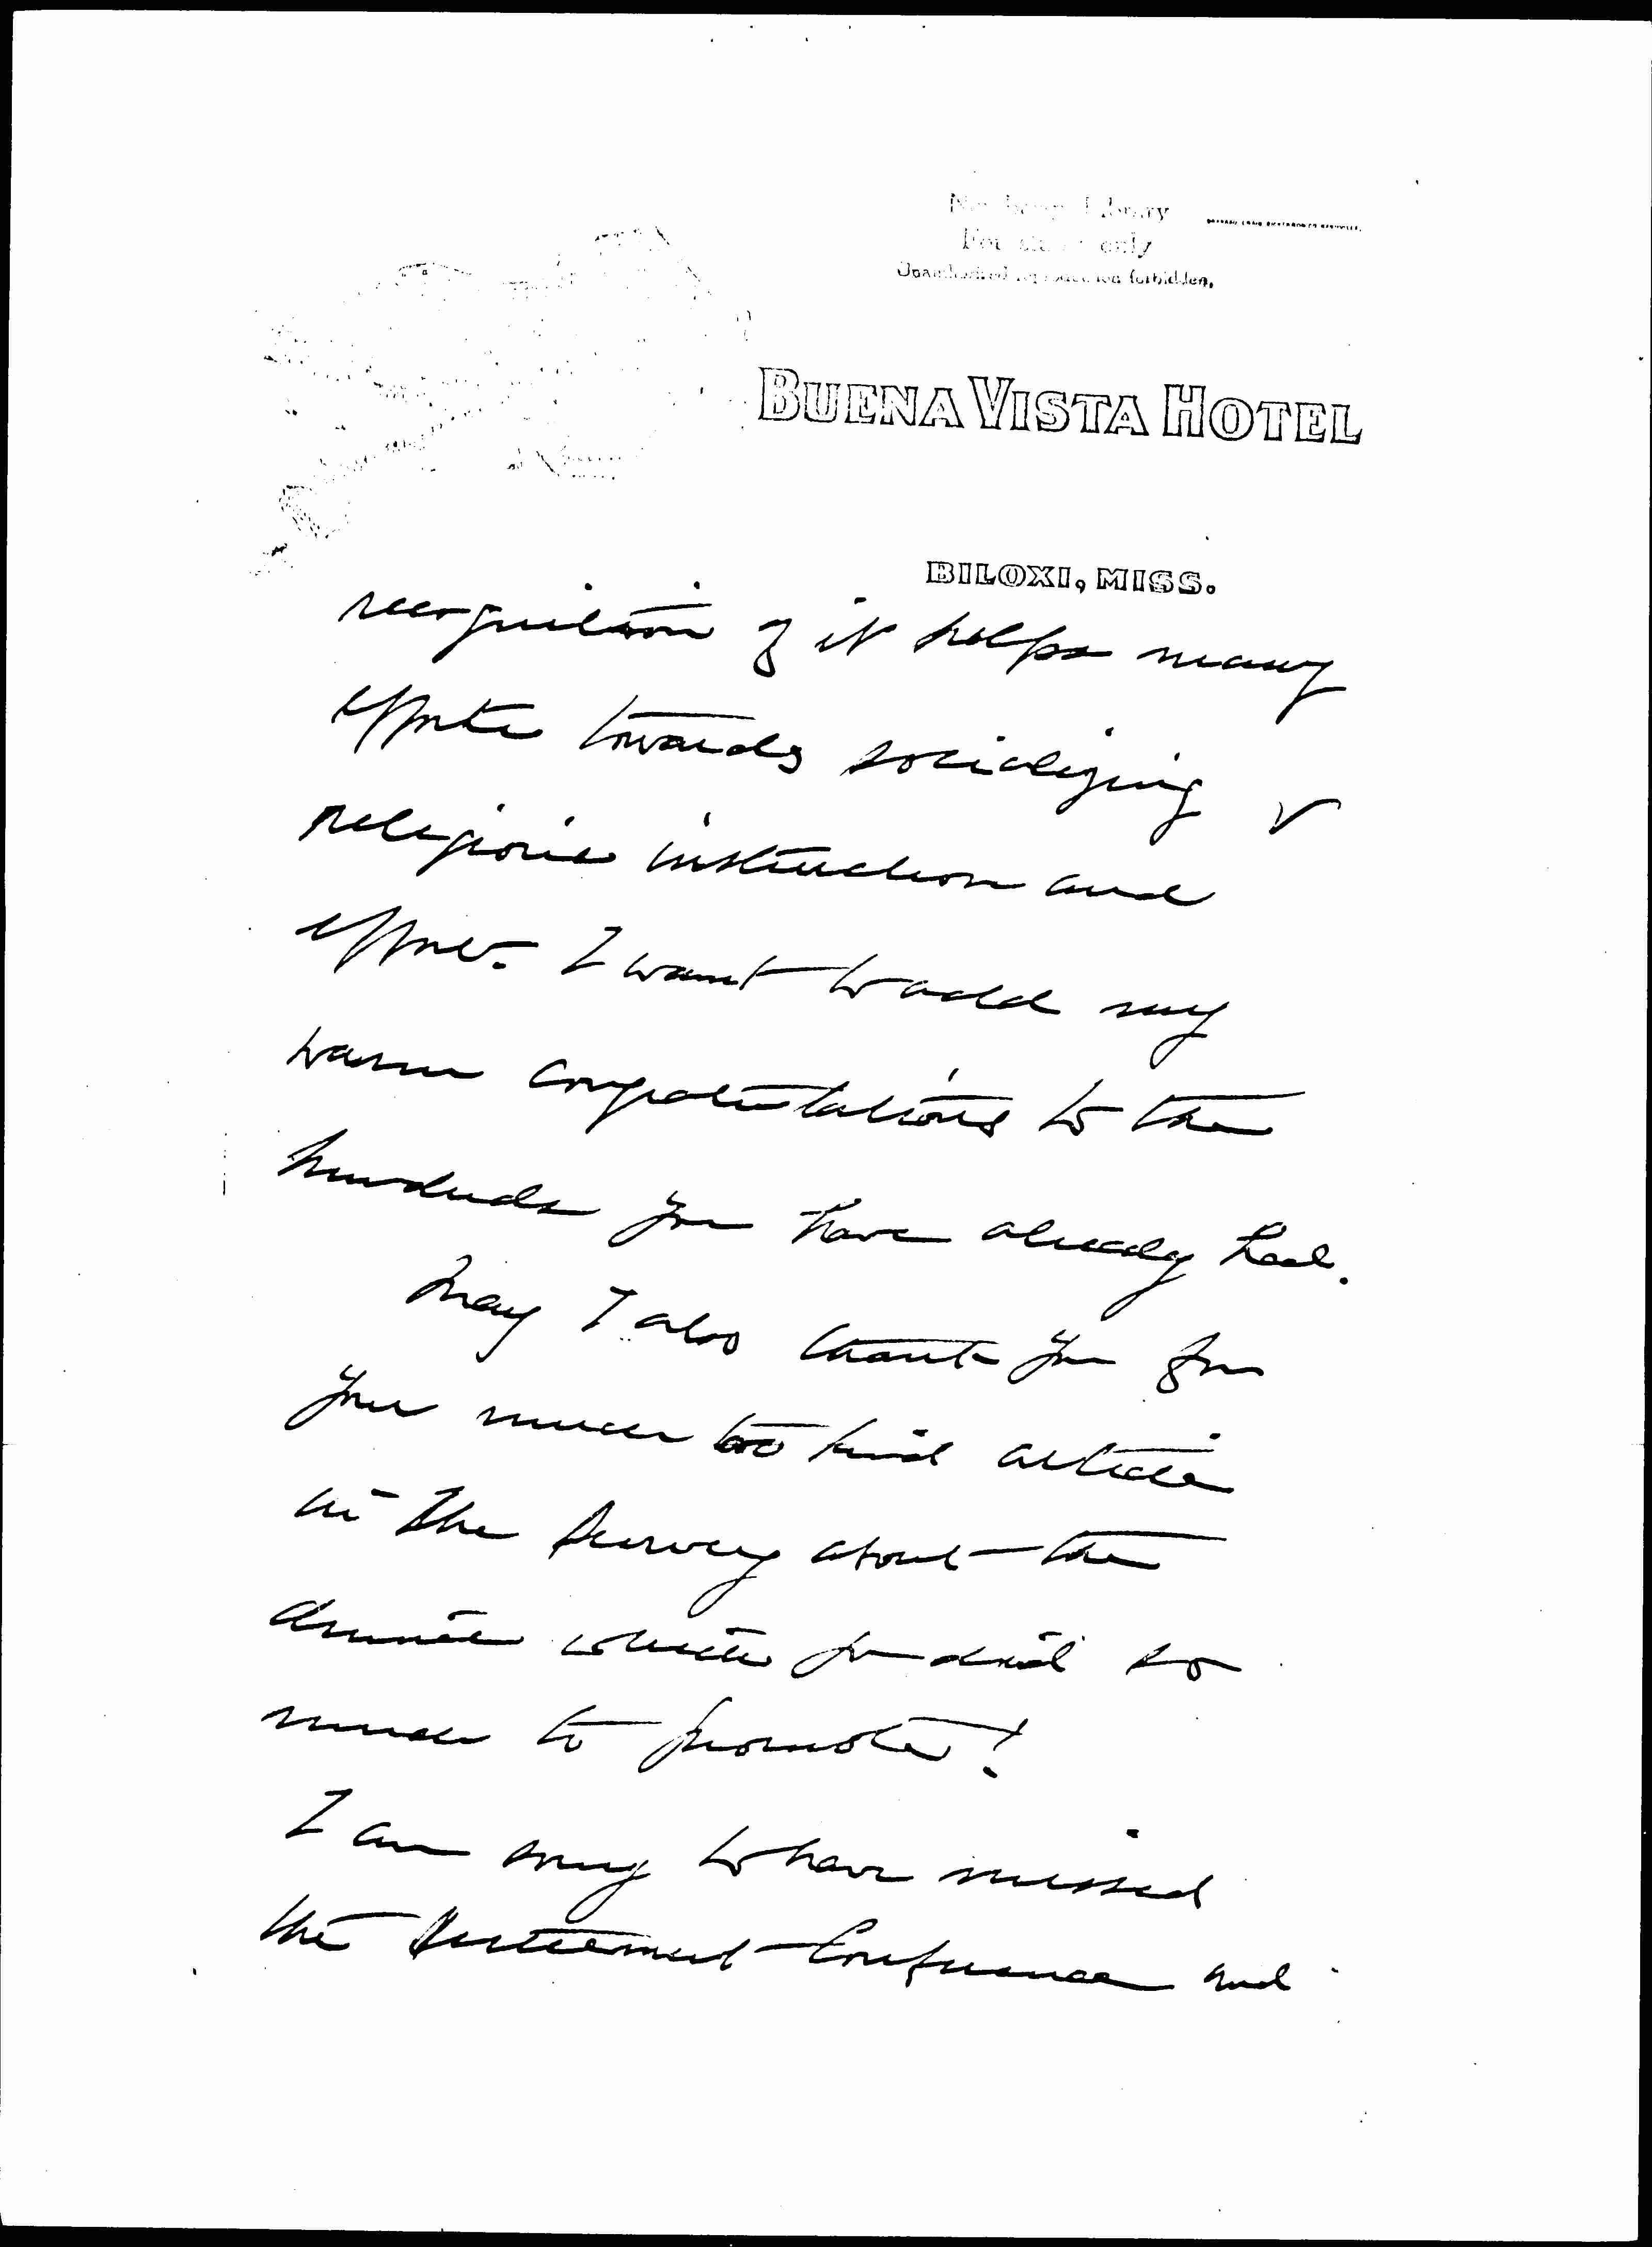 Library
For study only
Unauthorized reproduction forbidden.
BUENA VISTA HOTEL
BILOXI, MISS.
recognition of it helps many
efforts towards socializing
religious instruction and
effort. I want to add my
warm congratulations to the
hundreds you have already had.
May I also thank you for
your much too kind article
in the Survey about the
which you did so
much to promote!
I am sorry to have missed
the Conference and